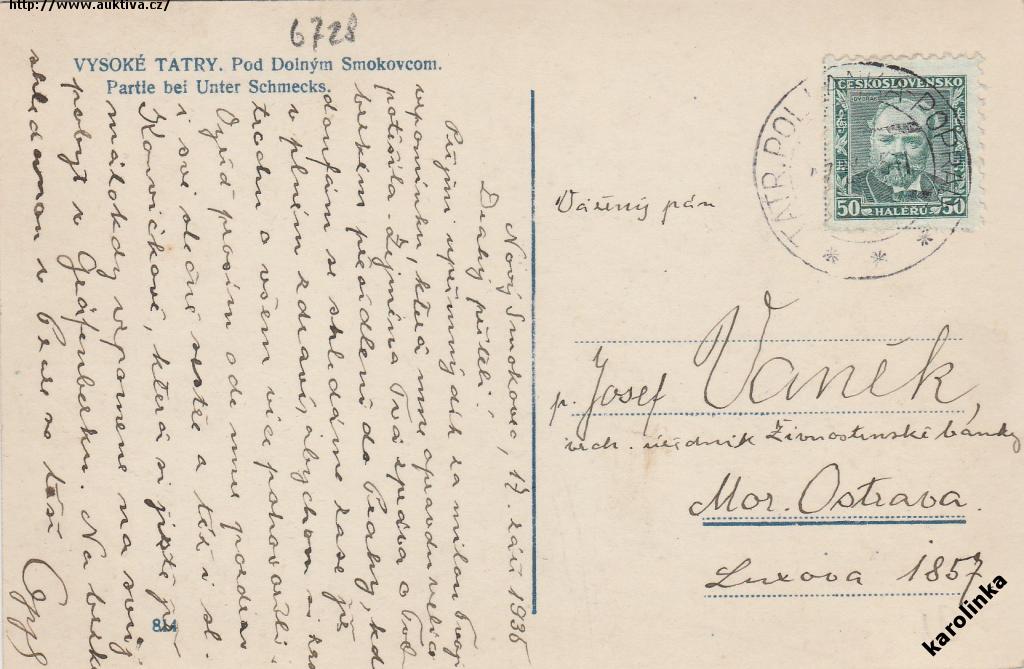 http://www.auktiva.cz/
6728
VYSOKÉ TATRY. Pod Dolným Smokovcom.
Partie bei Unter Schmecks.
Nový Smokovec, 17. září 1935
Drahý příteli,
Přijmi upřímný dík za milou Tvoji
vzpomínku, která mne opravdu velice
potěšila. Zejména Tvá zpráva o Tvé
brzkém přesídlení do Prahy, kde
doufám se shledáme zase již
v plném zdraví, abychom si
trochu o všem více pohovořili
Ozřd prosím ode mne pozdrav
i své slečně sestře a též i sl.
Konvičkové, která si jistě již
málokdy vzpomene na svůj
pobyt v Gräfenberku. Na brzké
shledanou v Praze se těší
844
ČESKOSLOVENSKO
DVOŘÁK
50 HALÉŘŮ 50
TATR. POLIANKA
Vážený pán
p. Josef Vaněk,
vrch. úředník Živnostenské banky
Mor. Ostrava.
Luxova 1857
karolinka